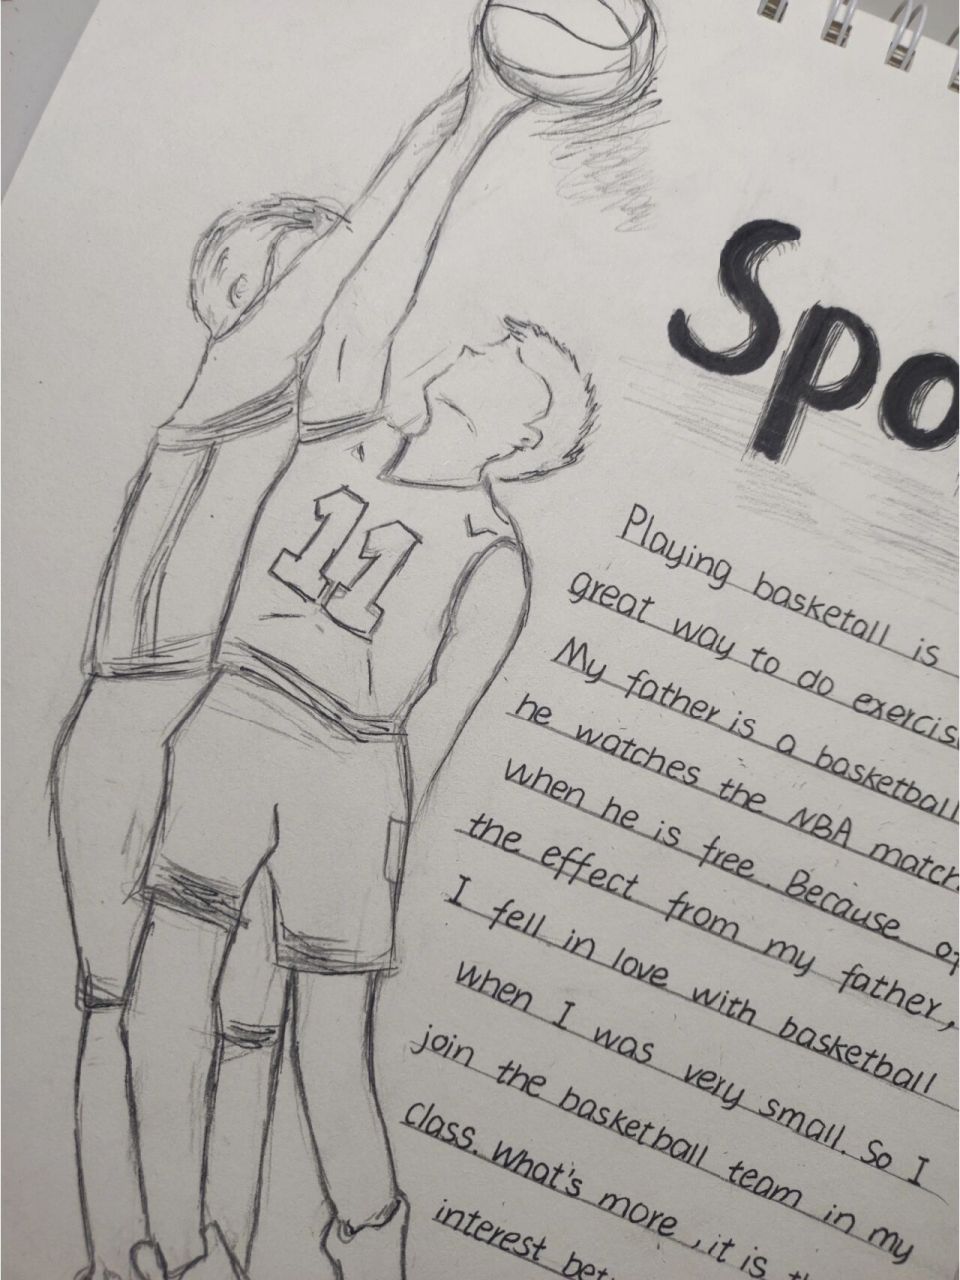 Spo
11
Playing basketall is
great way to do exercis
My father is a basketball
he watches the NBA match
when he is free. Because of
the effect from my father,
I fell in love with basketball
when I was very small. So I
join the basketball team in my
class. what's more, it is th
interest bet